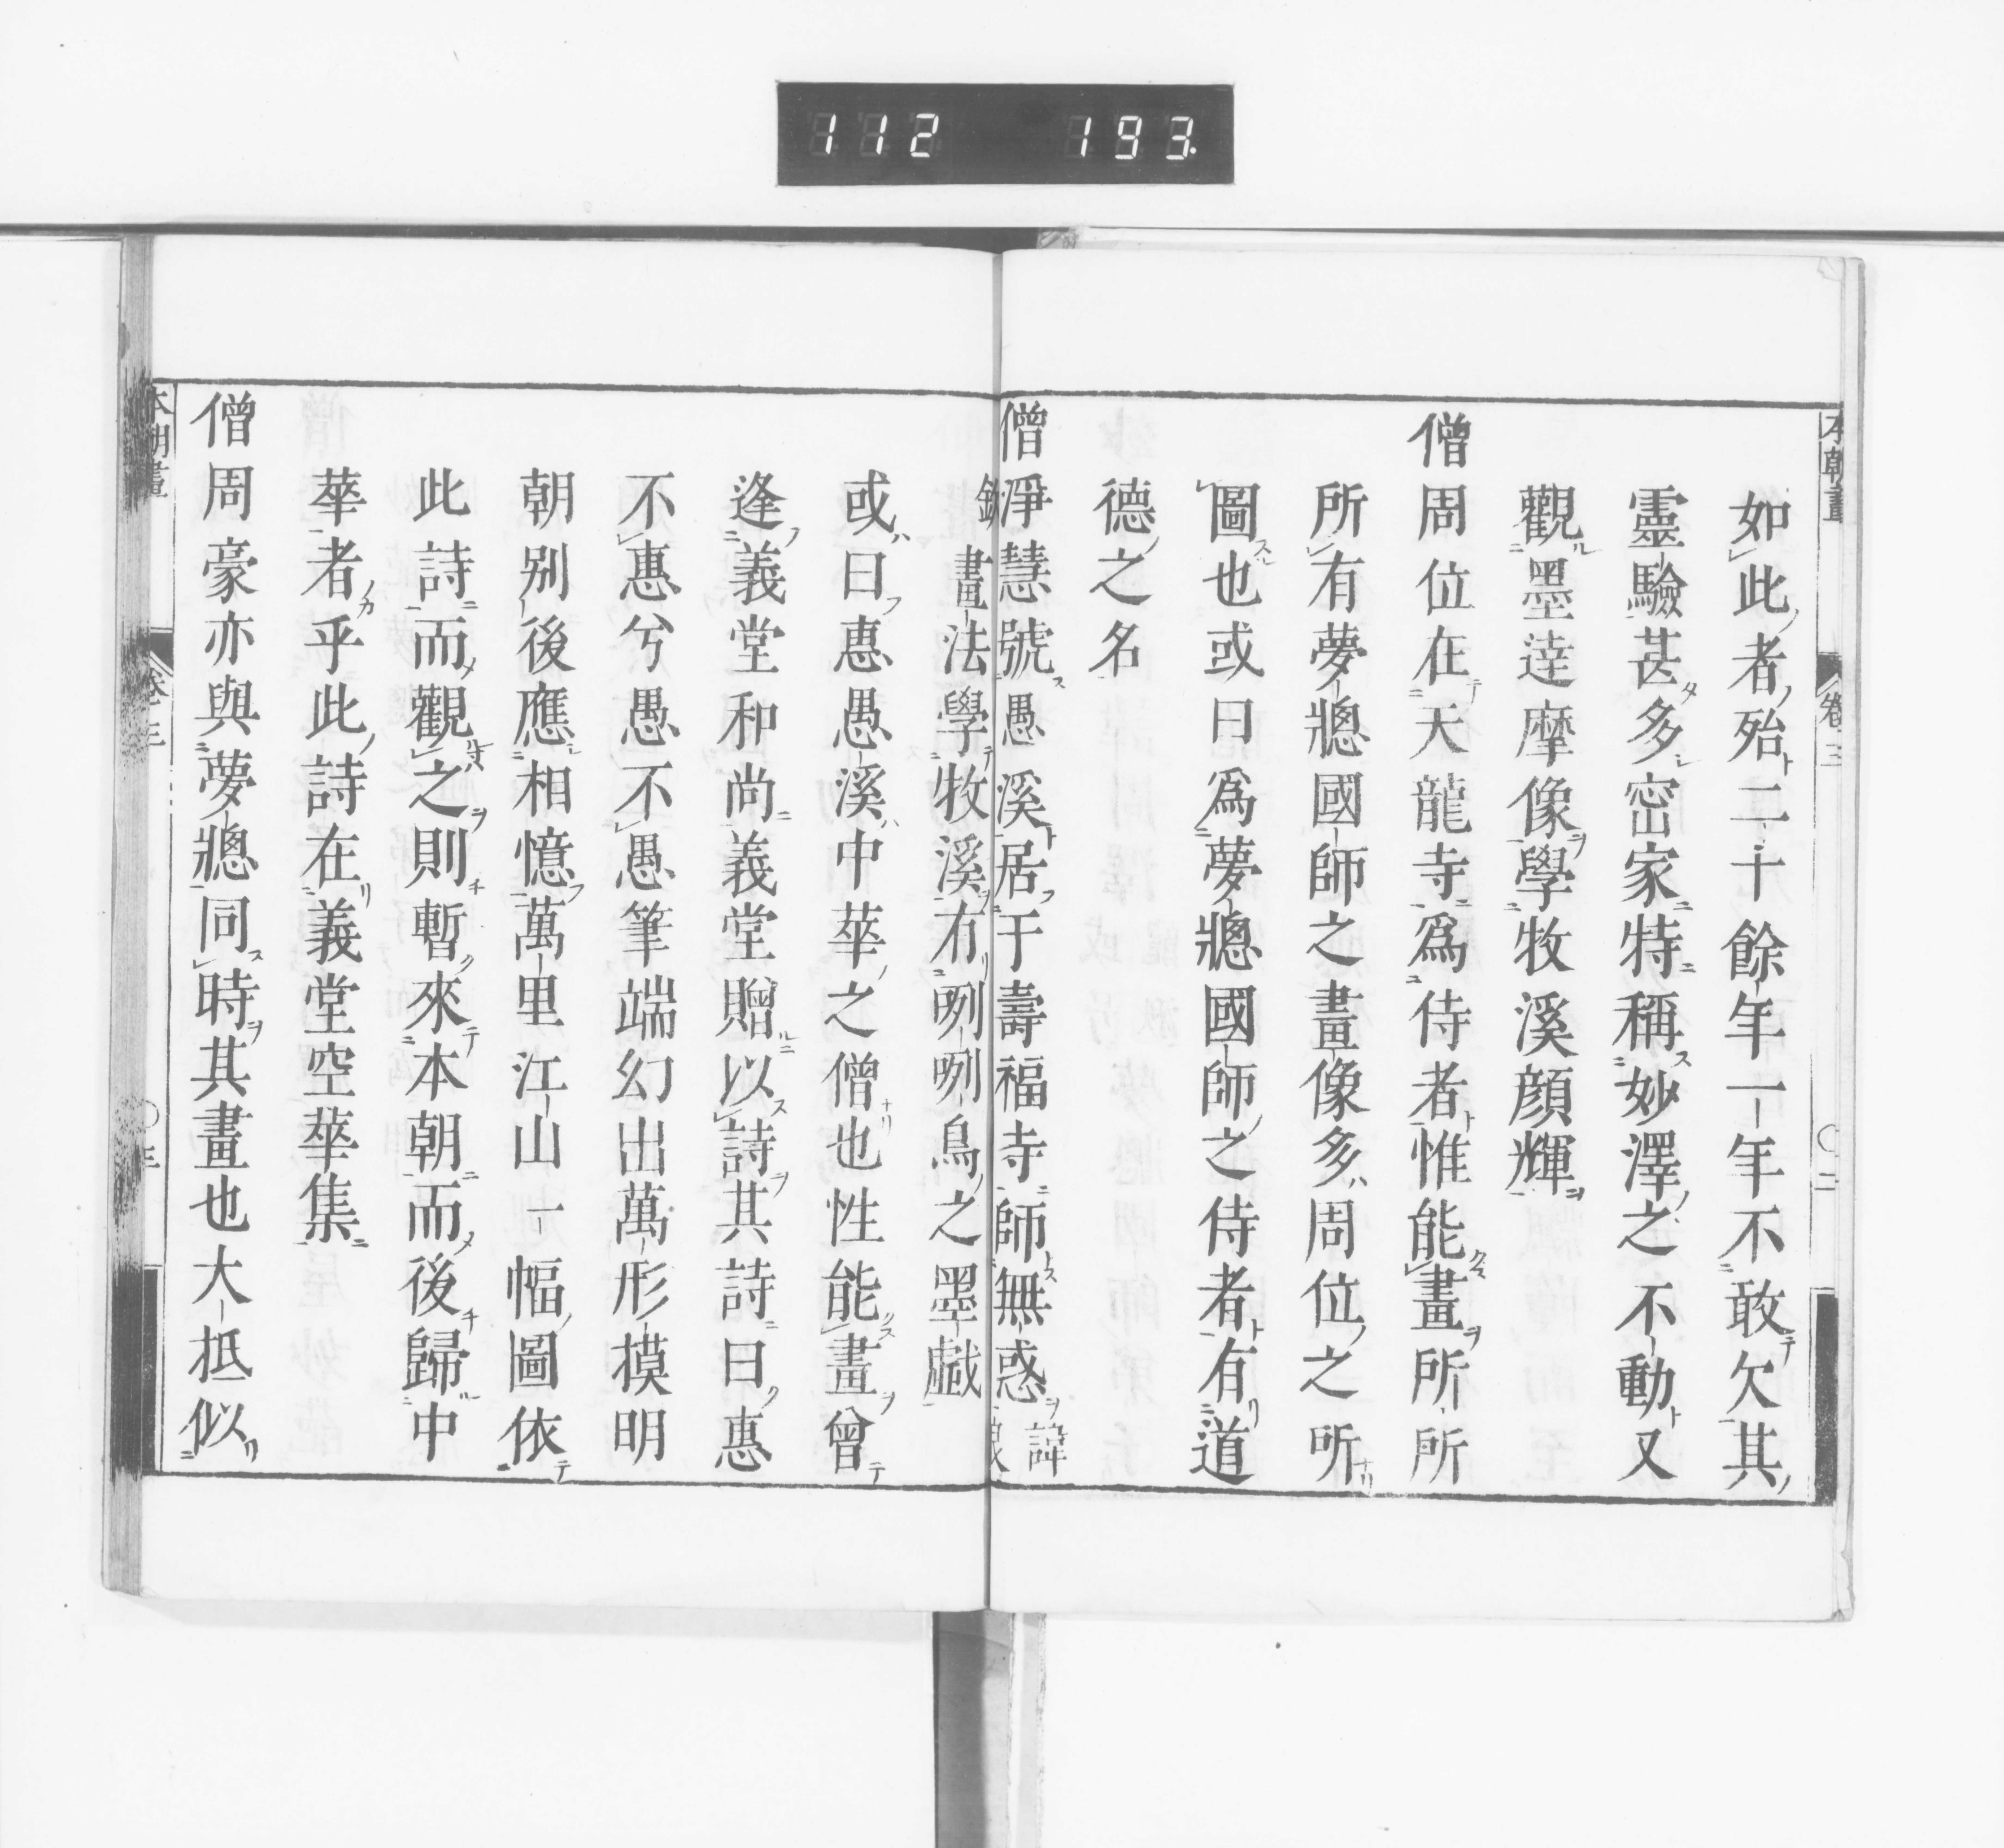 112 193.
本朝畫 卷三 〇二
如此者殆二十餘年一年不敢欠其
靈驗甚多宻家特稱妙澤之不動又
觀墨達摩像學牧溪顔輝
僧周位在天龍寺爲侍者惟能畫所所
所有夢牕國師之畫像多周位之所
圖也或曰爲夢牕國師之侍者有道
德之名
僧淨慧號愚溪居于壽福寺師無惑諱
畫法學牧溪有咧咧鳥之墨戯
或曰惠愚溪中華之僧也性能畫曾
逢義堂和尚義堂贈以詩其詩曰惠
不惠兮愚不愚筆端幻出萬形摸明
朝别後應相憶萬里江山一幅圖依
此詩而觀之則暫來本朝而後歸中
華者乎此詩在義堂空華集
僧周豪亦與夢牕同時其畫也大抵似
本朝畫 卷三 〇三